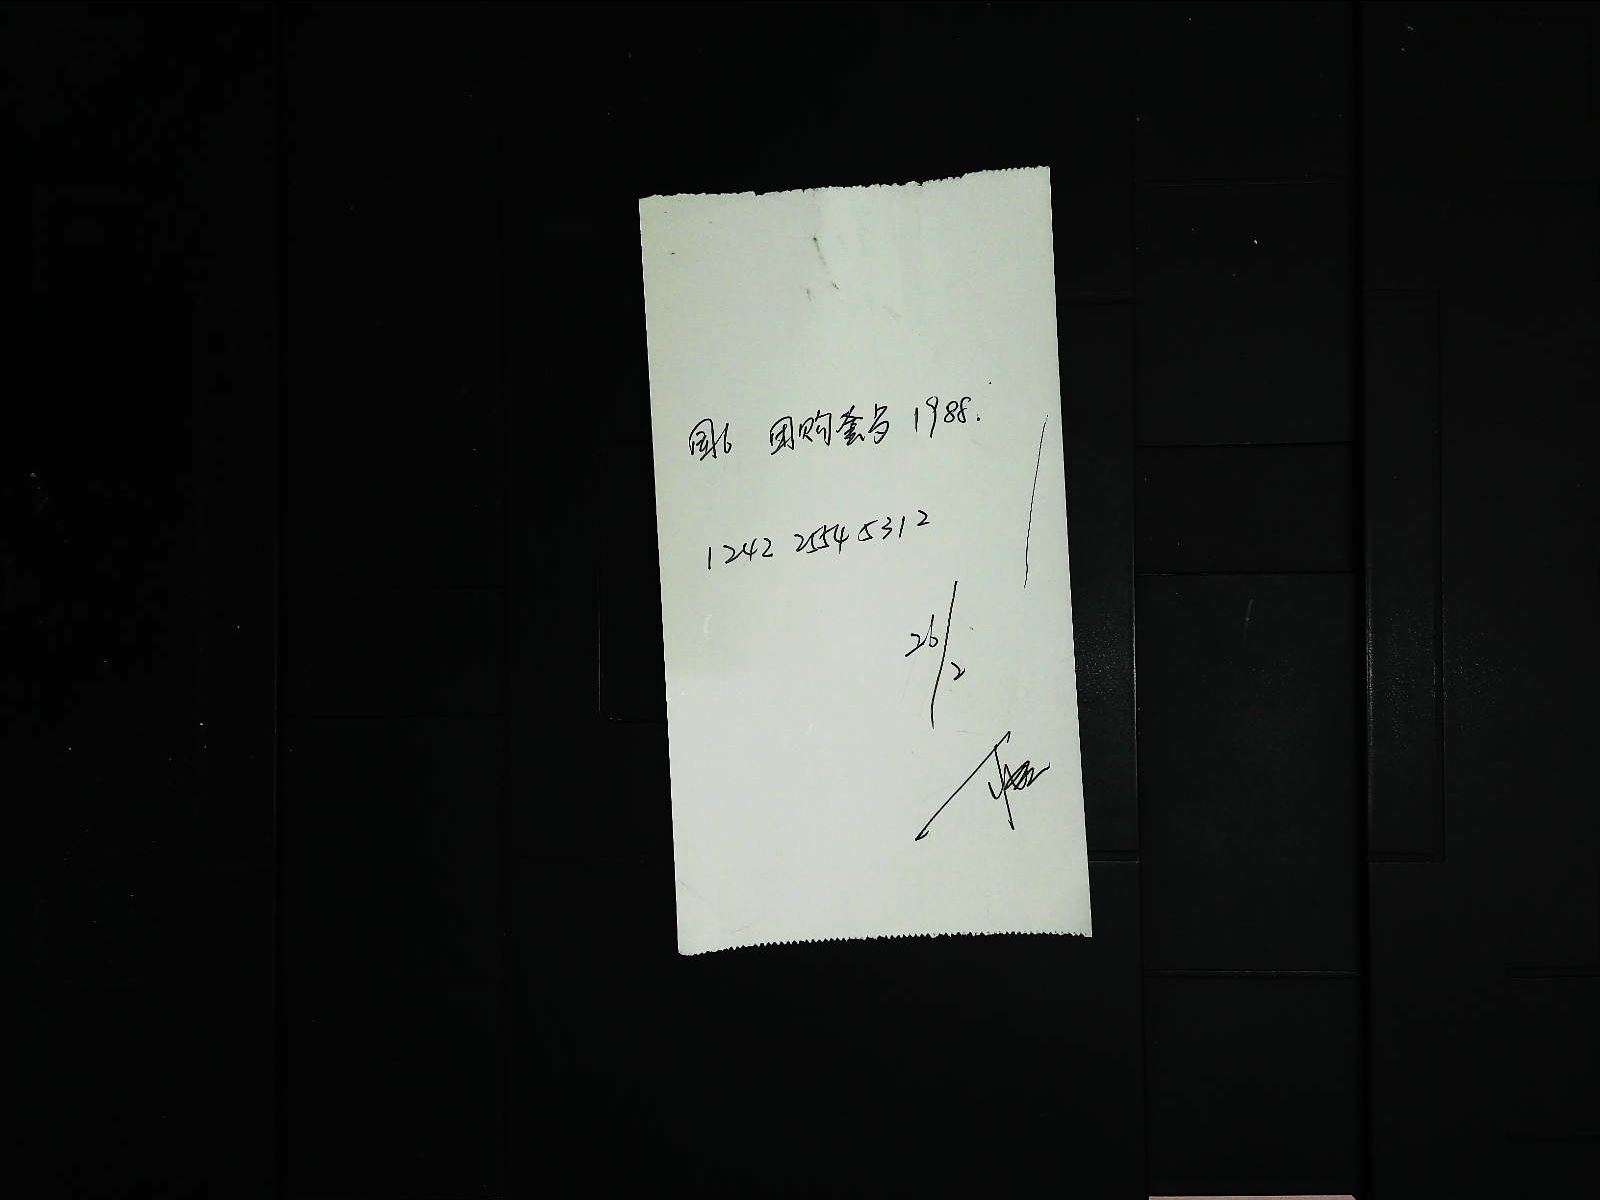 国6 团购套与 1988.
1242 2554 5312
26/2